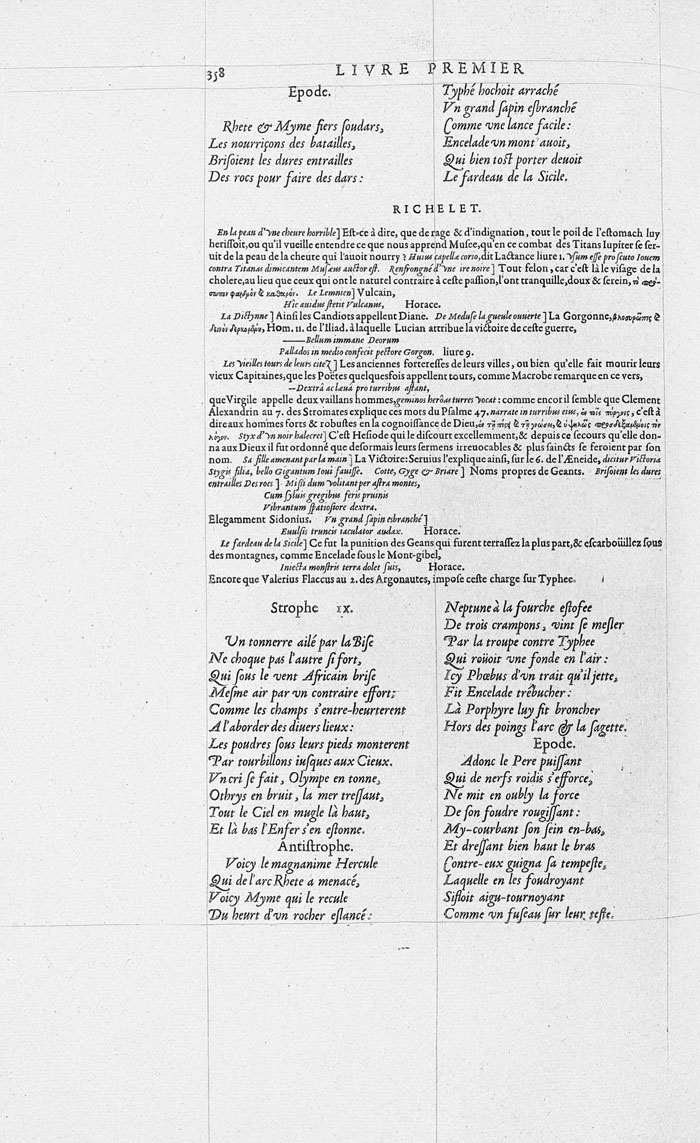 358
LIVRE PREMIER
Epode.
Rhete & Myme fiers ſoudars,
Les nourriçons des batailles,
Briſoient les dures entrailles
Des rocs pour faire des dars :
Typhé hochoit arraché
Vn grand ſapin eſbranché
Comme vne lance facile :
Encelade vn mont auoit,
Qui bien toſt porter deuoit
Le fardeau de la Sicile.
RICHELET.
En la peau d'vne cheure horrible] Eſt-ce à dire, que de rage & d'indignation, tout le poil de l'eſtomach luy
heriſſoit, ou qu'il vueille entendre ce que nous apprend Muſee, qu'en ce combat des Titans Iupiter ſe ſer-
uit de la peau de la cheure qui l'auoit nourry ? Huius capellæ corio, dit Lactance liure 1. vſum eſſe pro ſcuto Iouem
contra Titanas dimicantem Muſæus auctor eſt. Renfrongné d'vne ire noire] Tout felon, car c'eſt là le viſage de la
cholere, au lieu que ceux qui ont le naturel contraire à ceſte paſſion, l'ont tranquille, doux & ſerein,
Le Lemnien] Vulcain,
Hic auidus ſtetit Vulcanus, Horace.
La Dictynne] Ainſi les Candiots appellent Diane. De Meduſe la gueule ouuerte] La Gorgonne,
Hom. 11. de l'Iliad. à laquelle Lucian attribue la victoire de ceſte guerre,
——Bellum immane Deorum
Pallados in medio confecit pectore Gorgon. liure 9.
Les vieilles tours de leurs citez] Les anciennes fortereſſes de leurs villes, ou bien qu'elle fait mourir leurs
vieux Capitaines, que les Poëtes quelquesfois appellent tours, comme Macrobe remarque en ce vers,
—Dextrâ ac læuâ pro turribus aſtant,
que Virgile appelle deux vaillans hommes, geminos heröas turres vocat : comme encor il ſemble que Clement
Alexandrin au 7. des Stromates explique ces mots du Pſalme 47. narrate in turribus eius, c'eſt à
dire aux hommes forts & robuſtes en la cognoiſſance de Dieu,
Styx d'vn noir halecret] C'eſt Heſiode qui le diſcourt excellemment, & depuis ce ſecours qu'elle don-
na aux Dieux il fut ordonné que deſormais leurs ſermens irreuocables & plus ſaincts ſe feroient par ſon
nom. Sa fille amenant par la main] La Victoire: Seruius l'explique ainſi, ſur le 6. de l'Æneide, dicitur Victoria
Stygis filia, bello Gigantum Ioui fauiſſe. Cotte, Gyge & Briare] Noms propres de Geants. Briſoient les dures
entrailles Des rocs] Miſſi dum volitant per aſtra montes,
Cum ſyluis gregibus feris pruinis
Vibrantum ſpatioſiore dextra.
Elegamment Sidonius. Vn grand ſapin esbranché]
Euulſis truncis iaculator audax. Horace.
Le fardeau de la Sicile] Ce fut la punition des Geans qui furent terraſſez la plus part, & eſcarboüillez ſous
des montagnes, comme Encelade ſous le Mont-gibel,
Iniecta monſtris terra dolet ſuis, Horace.
Encore que Valerius Flaccus au 2. des Argonautes, impoſe ceſte charge ſur Typhee.
Strophe IX.
Vn tonnerre ailé par la Biſe
Ne choque pas l'autre ſi fort,
Qui ſous le vent Africain briſe
Meſme air par vn contraire effort;
Comme les champs s'entre-heurterent
A l'aborder des diuers lieux :
Les poudres ſous leurs pieds monterent
Par tourbillons iuſques aux Cieux.
Vn cri ſe fait, Olympe en tonne,
Othrys en bruit, la mer treſſaut,
Tout le Ciel en mugle là haut,
Et là bas l'Enfer s'en eſtonne.
Antiſtrophe.
Voicy le magnanime Hercule
Qui de l'arc Rhete a menacé,
Voicy Myme qui le recule
Du heurt d'vn rocher eſlancé :
Neptune à la fourche eſtofee
De trois crampons, vint ſe meſler
Par la troupe contre Typhee
Qui roüoit vne fonde en l'air :
Icy Phœbus d'vn trait qu'il jette,
Fit Encelade trébucher :
Là Porphyre luy fit broncher
Hors des poings l'arc & la ſagette.
Epode.
Adonc le Pere puiſſant
Qui de nerfs roidis s'efforce,
Ne mit en oubly la force
De ſon foudre rougiſſant :
My-courbant ſon ſein en-bas,
Et dreſſant bien haut le bras
Contre-eux guigna ſa tempeſte,
Laquelle en les foudroyant
Sifloit aigu-tournoyant
Comme vn fuſeau ſur leur teſte.